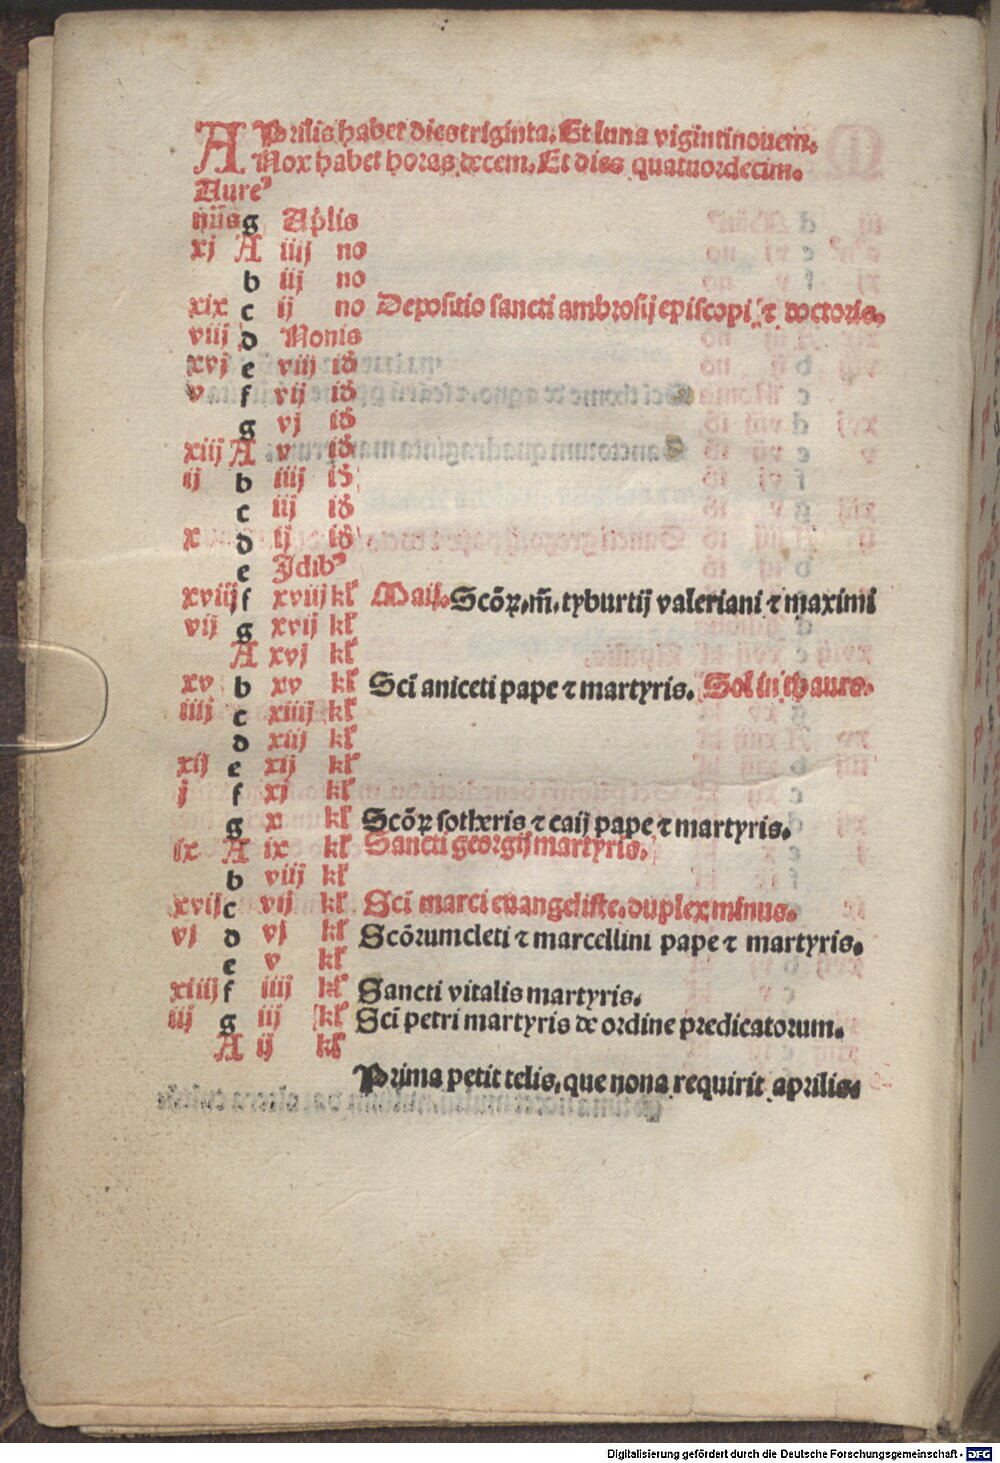 APrilis habet dies triginta. Et luna vigintinouem.
Nox habet horas decem. Et dies quatuordecim.
Aureꝰ
g Ap̄lis
xj A iiij no
b iij no
xix c ij no Depositio sancti ambrosij episcopi ⁊ doctoris.
viij d Nonis
xvj e viij id
v f vij id
g vj id
xiij A v id
ij b iiij id
c iij id
x d ij id
e Jdibꝰ
xviij f xviij kl̓ Maij. Scōꝝ. m̄. tyburtij valeriani ⁊ maximi
vij g xvij kl̓
A xvj kl̓
xv b xv kl̓ Sci̅ aniceti pape ⁊ martyris. Sol in thauro.
iiij c xiiij kl̓
d xiij kl̓
xij e xij kl̓
j f xj kl̓
g x kl̓ Scōꝝ sotheris ⁊ caij pape ⁊ martyris.
ix A ix kl̓ Sancti georgij martyris.
b viij kl̓
xvij c vij kl̓ Sci̅ marci euangeliste. duplex minus.
vj d vj kl̓ Scōrum cleti ⁊ marcellini pape ⁊ martyris.
e v kl̓
xiiij f iiij kl̓ Sancti vitalis martyris.
iij g iij kl̓ Sci̅ petri martyris de ordine predicatorum.
A ij kl̓
Prima petit telis. que nona requirit aprilis.
Digitalisierung gefördert durch die Deutsche Forschungsgemeinschaft - DFG